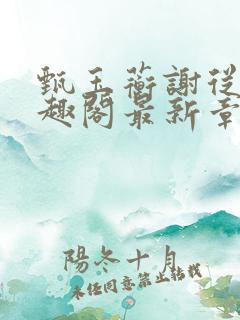 甄玉蘅謝從
趣閣最新章
陽冬十月
未经同意禁止转载